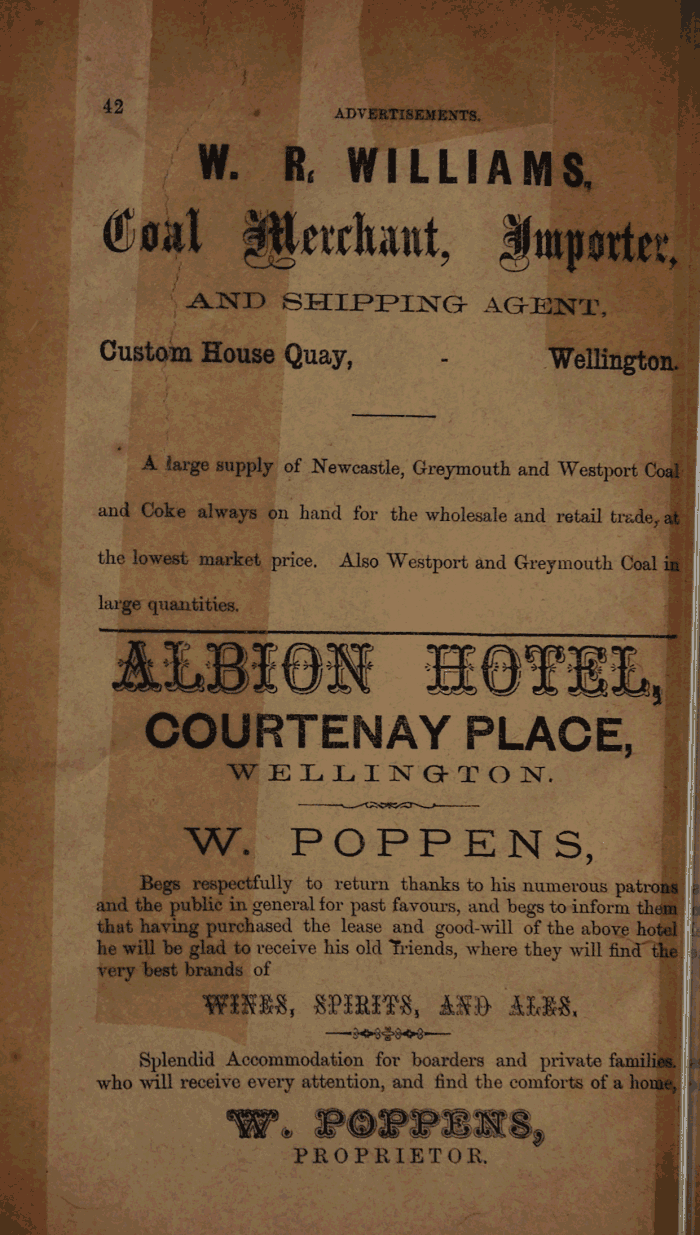 42
ADVERTISEMENTS.
W. R. WILLIAMS,
Coal Merchant, Importer,
AND SHIPPING AGENT,
Custom House Quay, - Wellington.
A large supply of Newcastle, Greymouth and Westport Coal
and Coke always on hand for the wholesale and retail trade, at
the lowest market price. Also Westport and Greymouth Coal in
large quantities.
ALBION HOTEL,
COURTENAY PLACE,
WELLINGTON.
W. POPPENS,
Begs respectfully to return thanks to his numerous patrons
and the public in general for past favours, and begs to inform them
that having purchased the lease and good-will of the above hotel
he will be glad to receive his old friends, where they will find the
very best brands of
WINES, SPIRITS, AND ALES.
Splendid Accommodation for boarders and private families.
who will receive every attention, and find the comforts of a home,
W. POPPENS,
PROPRIETOR.